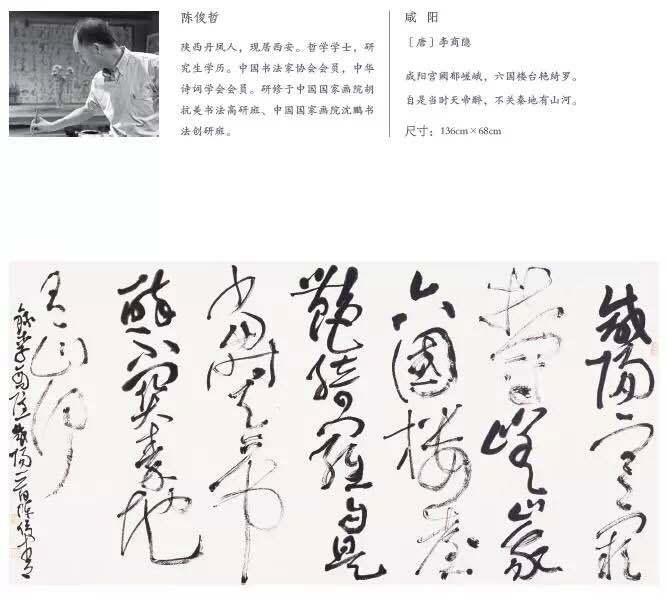 陈俊哲
陕西丹凤人，现居西安。哲学学士，研
究生学历。中国书法家协会会员，中华
诗词学会会员。研修于中国国家画院胡
抗美书法高研班、中国国家画院沈鹏书
法创研班。
咸 阳
［唐］李商隐
咸阳宫阙郁嵯峨，六国楼台艳绮罗。
自是当时天帝醉，不关秦地有山河。
尺寸：136cm×68cm
咸陽宮闕
嵯峨
六國樓臺
艷綺羅自是
當時天帝
醉不關秦地
有山河
錄李商隱咸陽一首陳俊